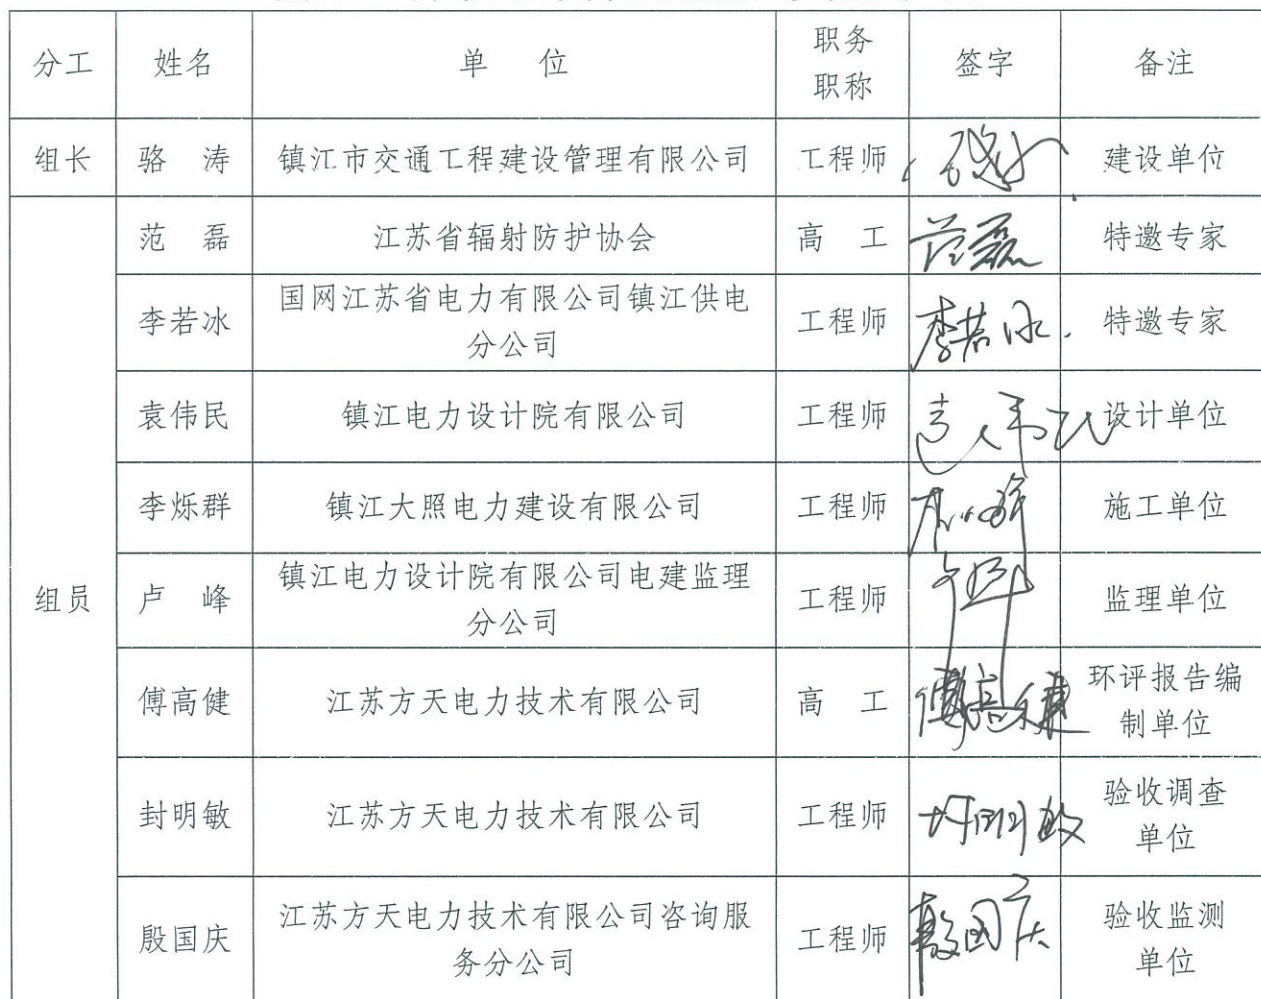 分工 姓名 单 位 职务 签字 备注
职称
组长 骆 涛 镇江市交通工程建设管理有限公司 工程师 建设单位
范 磊 江苏省辐射防护协会 高 工 范磊 特邀专家
李若冰 国网江苏省电力有限公司镇江供电 工程师 李若冰 特邀专家
分公司
袁伟民 镇江电力设计院有限公司 工程师 袁伟民 设计单位
李烁群 镇江大照电力建设有限公司 工程师 施工单位
组员 卢 峰 镇江电力设计院有限公司电建监理 工程师 监理单位
分公司
傅高健 江苏方天电力技术有限公司 高 工 傅高健 环评报告编
制单位
封明敏 江苏方天电力技术有限公司 工程师 封明敏 验收调查
单位
殷国庆 江苏方天电力技术有限公司咨询服 工程师 殷国庆 验收监测
务分公司 单位